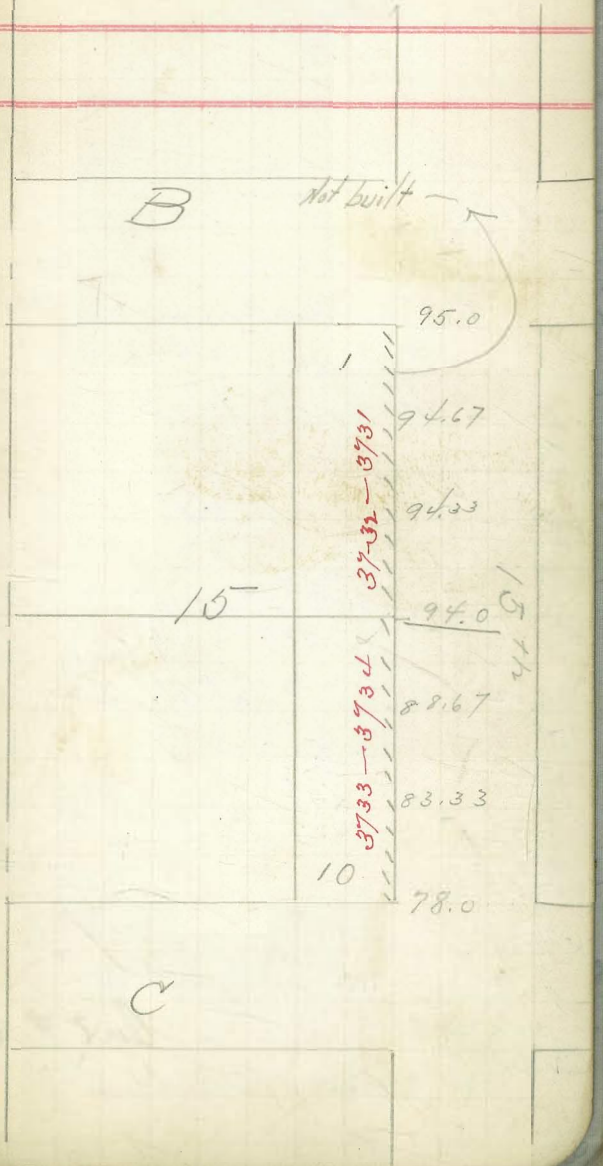 B
Not built —
95.0
1
94.67
3732 — 3731
94.33
15
94.0
15th
88.67
3733 — 3734
83.33
10
78.0
C